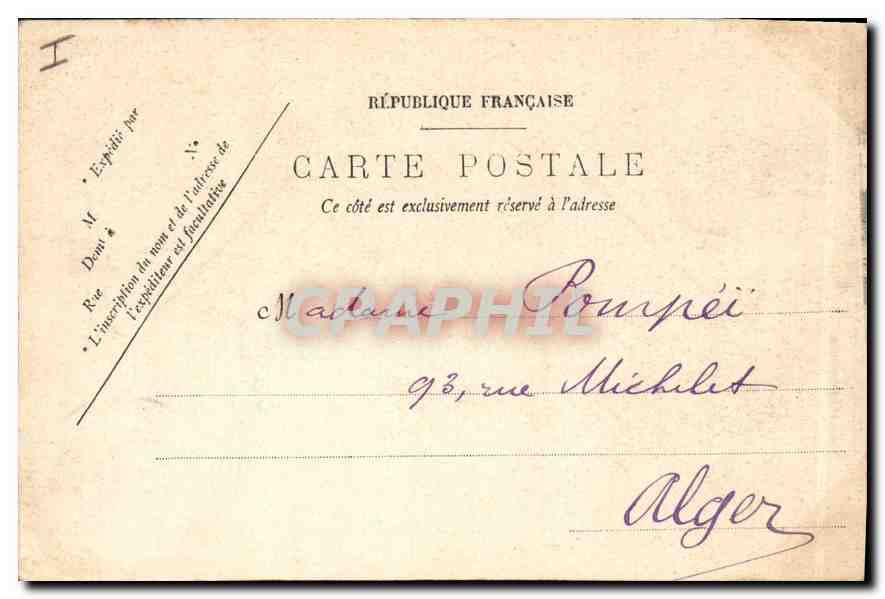 I
RÉPUBLIQUE FRANÇAISE
CARTE POSTALE
Ce côté est exclusivement réservé à l'adresse
* Expédié par
M
Demt à N°
Rue
* L'inscription du nom et de l'adresse de
l'expéditeur est facultative
Madame Pompéï
CPAPHIL
93, rue Michelet
Alger